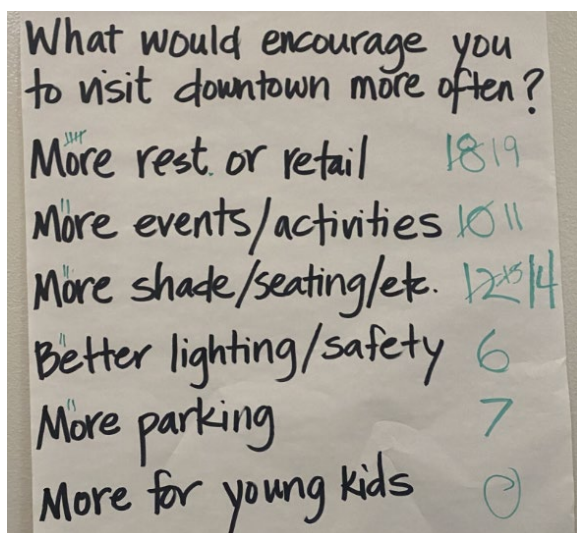 What would encourage you
to visit downtown more often?
More rest. or retail 18 19
More events/activities 10 11
More shade/seating/etc. 12 14
Better lighting/safety 6
More parking 7
More for young kids 0